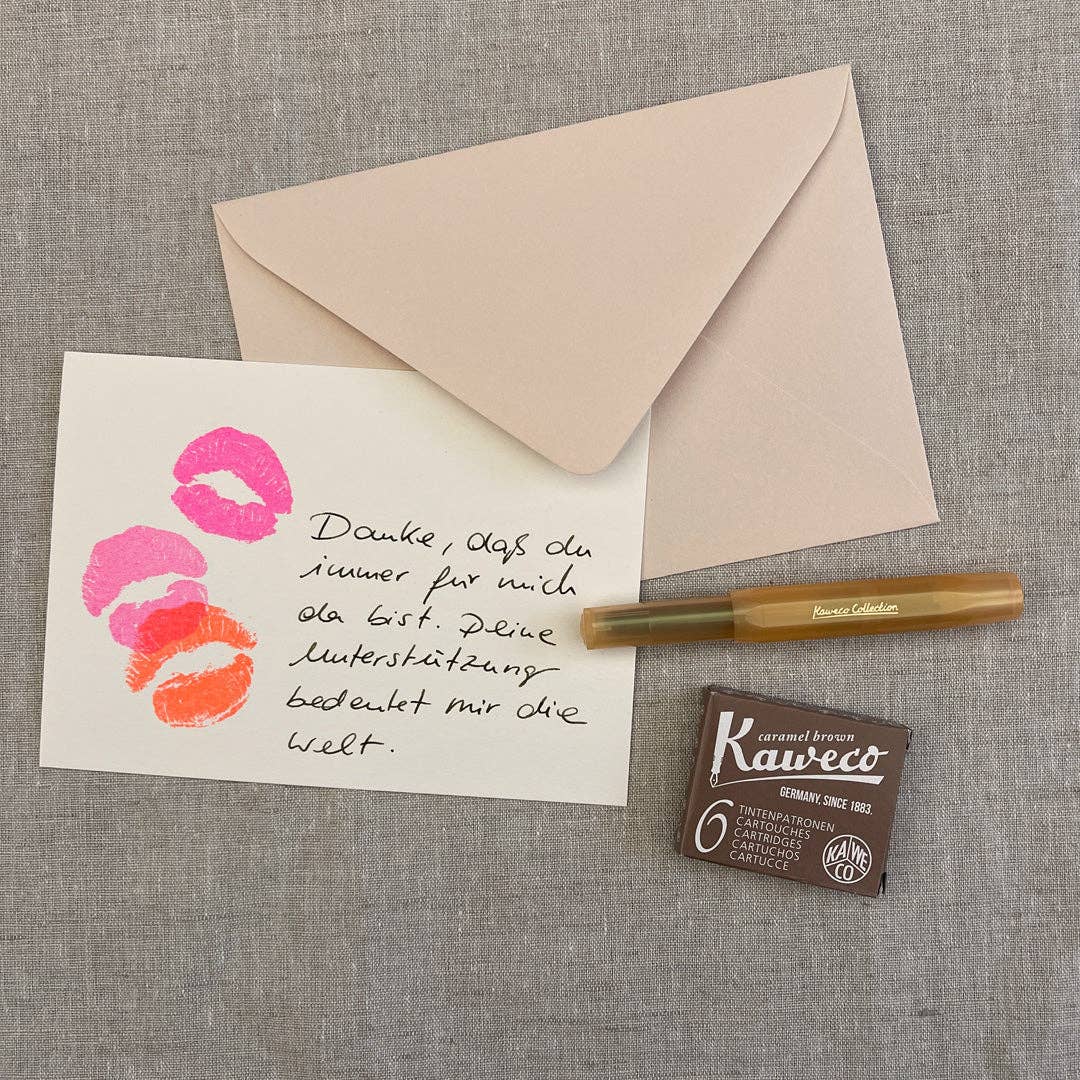 Danke, daß du
immer für mich
da bist. Deine
Unterstützung
bedeutet mir die
Welt.
Kaweco Collection
caramel brown
Kaweco
GERMANY, SINCE 1883.
6
TINTENPATRONEN
CARTOUCHES
CARTRIDGES
CARTUCHOS
CARTUCCE
KA WE
CO